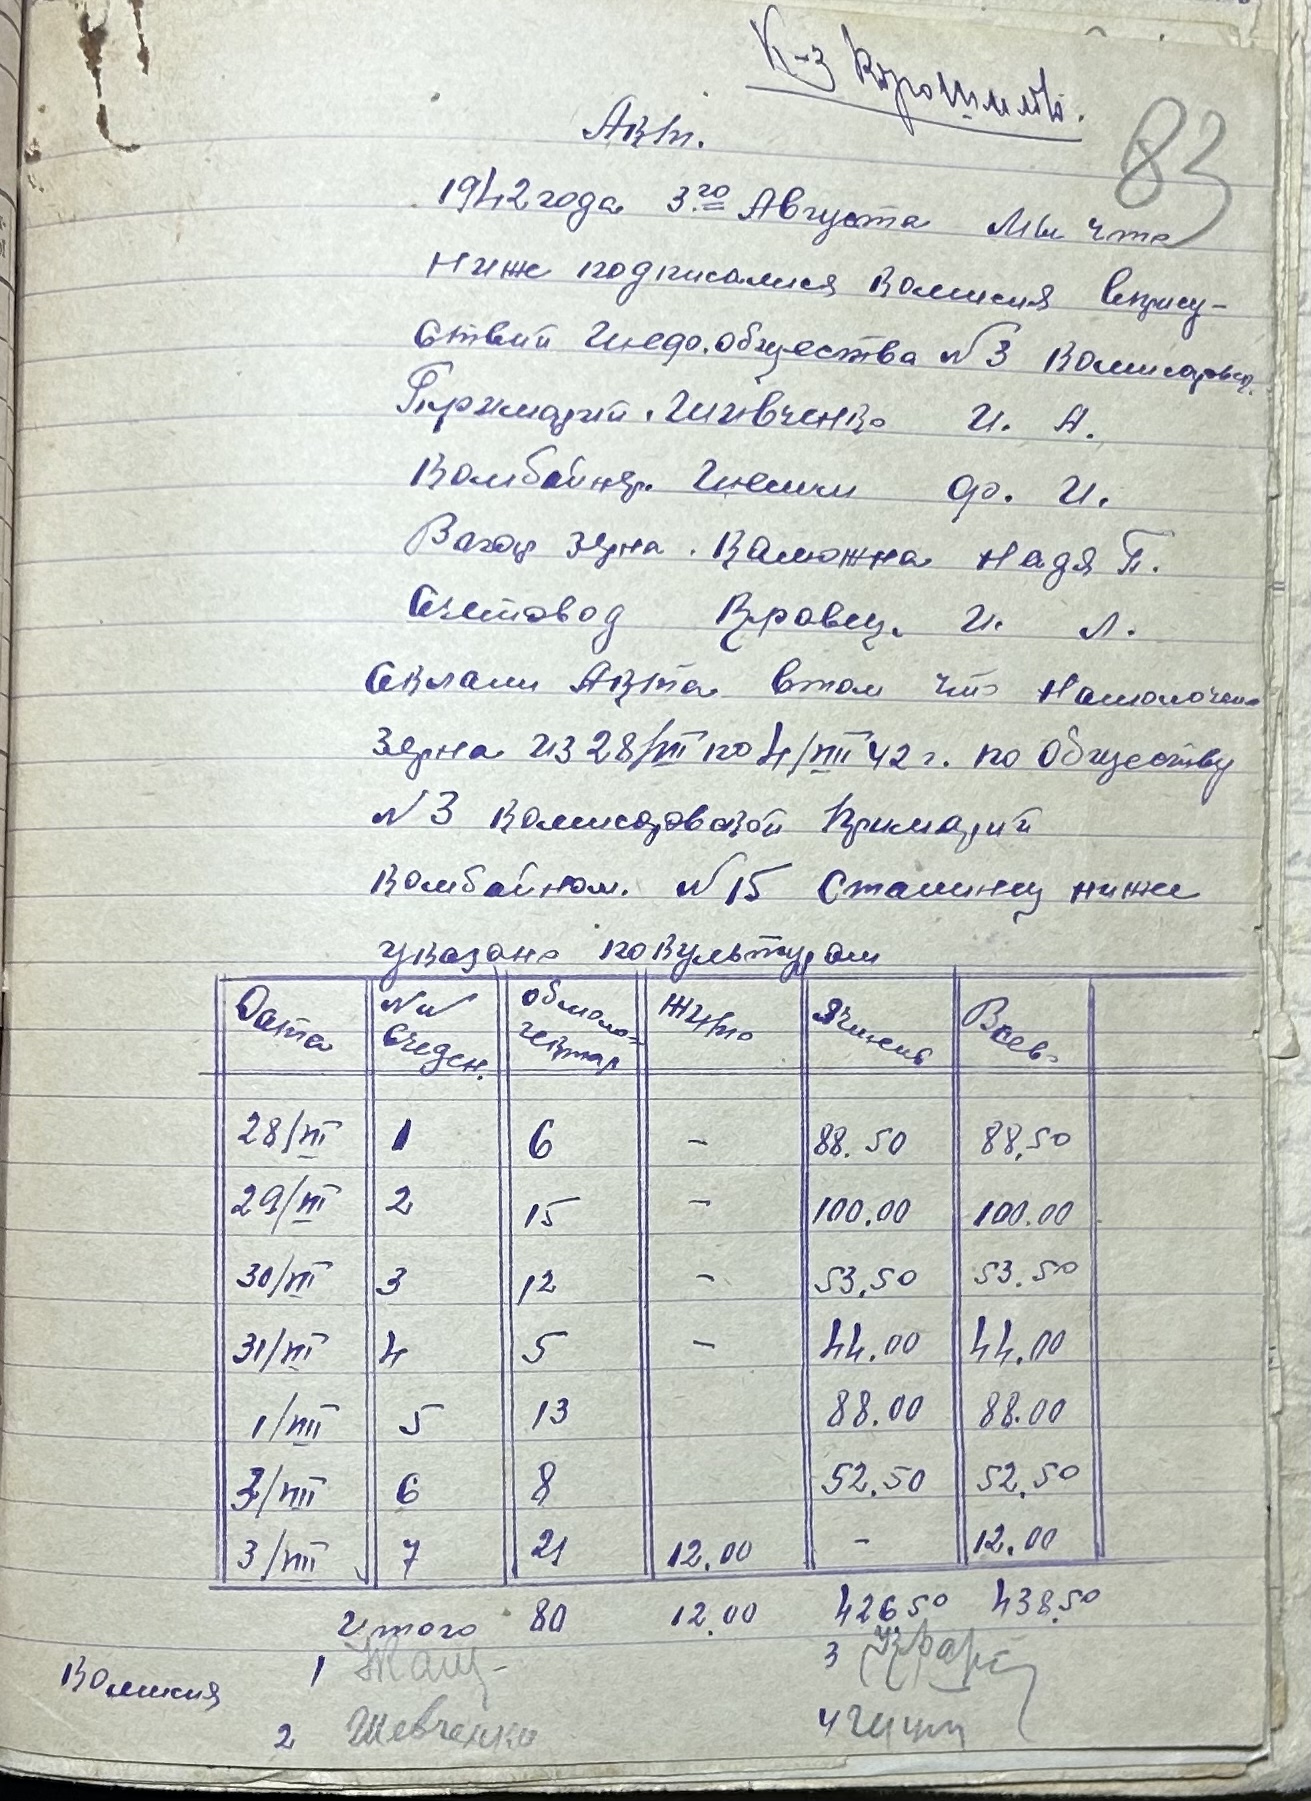 К-з Ворошилова.
83
Акт.
1942 года 3го Августа Мы что
ниж подписалися Комисия впрису-
ствии общества № 3 Комисаровка.
Примарии. Шивченко И. А.
Комбайнер. Ф. И.
Вагар зерна. Калюжна Надя П.
Счетовод Кравец. И. Л.
Склали Акта втом что Намолочено
Зерна из 28/VII по 4/VIII 42 г. по Обществу
№ 3 Комисаровской Примарии
Комбайном. № 15 Сталинец ниже
указано по культурам
Дата № № сведен. обмоло- гектар Жито Ячмень Всево
28/VII 1 6 - 88.50 88,50
29/VII 2 15 - 100.00 100.00
30/VII 3 12 - 53.50 53.50
31/VII 4 5 - 44.00 44.00
1/VIII 5 13 88.00 88.00
3/VIII 6 8 52.50 52.50
3/VIII 7 21 12.00 - 12.00
Итого 80 12.00 426.50 438.50
Комисия 1 3
2 Шевченко 4